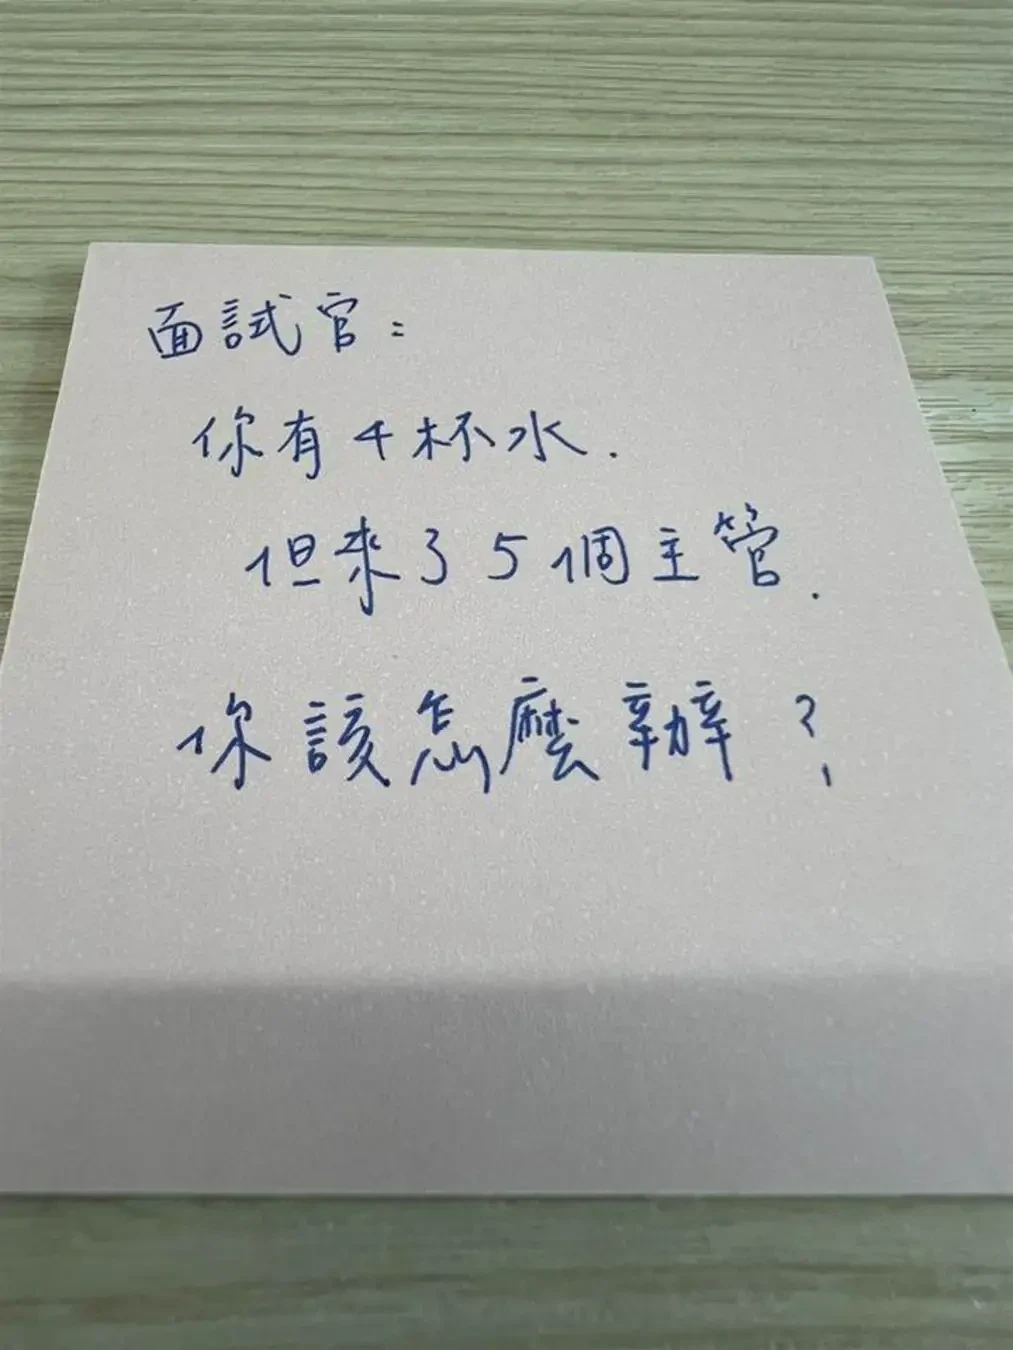 面試官:
你有4杯水.
但來了5個主管.
你該怎麼辦?